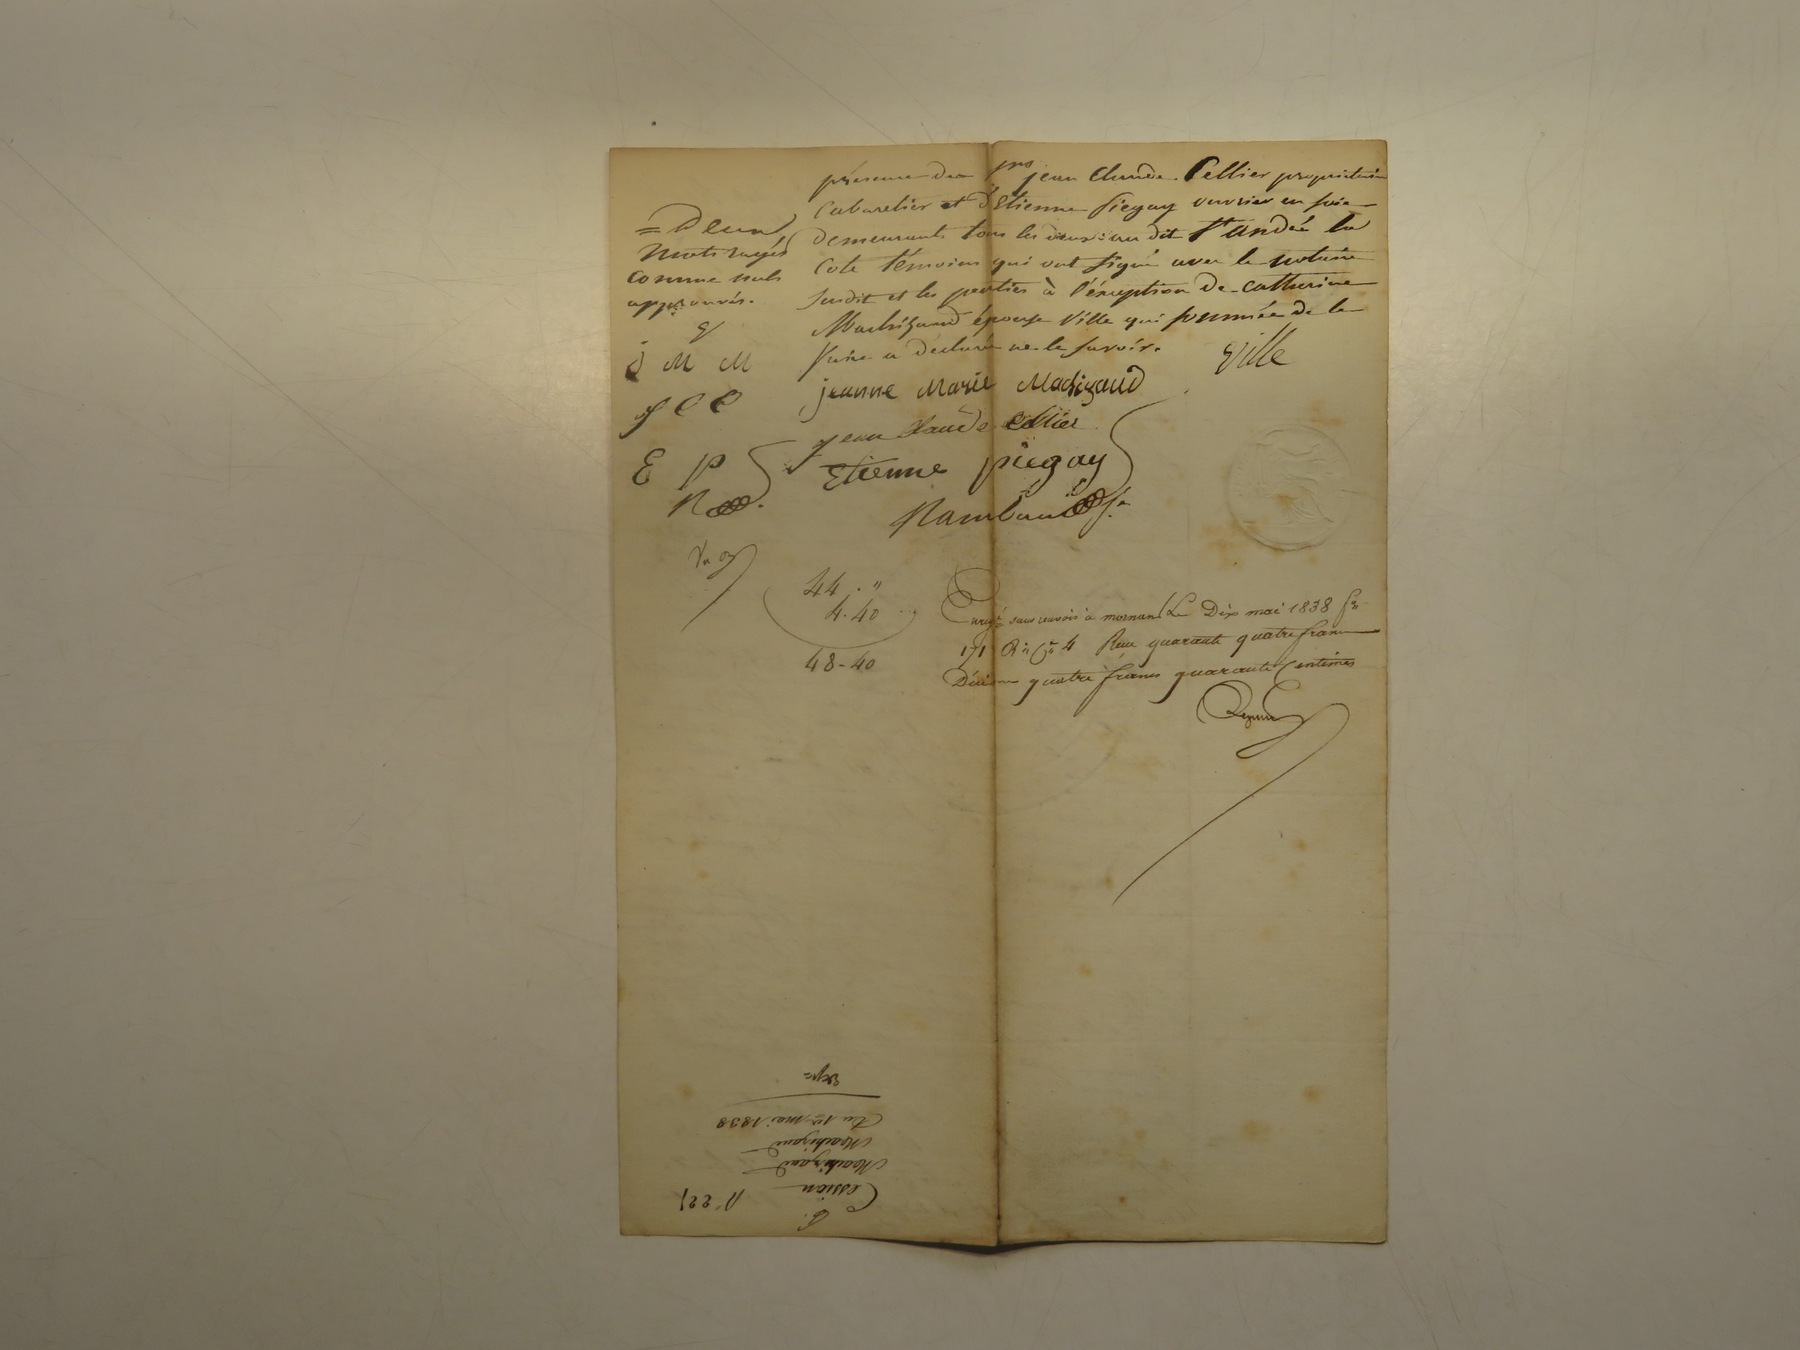 présence des srs jean Claude Cellier propriétaire
Cabaretier et d'Etienne Piegay ouvrier en soie
demeurants tous les deux au dit St Andéé la
Cote témoins qui ont signé avec le notaire
susdit et les parties à l'éxeption de Catherine
Machizaud épouse Ville qui sommée de le
faire a déclaré ne le savoir.
Ville
jeanne Marie Machizaud
jean Claude Cellier
Etienne piegay
Rambaud
= Deux
mots rayés
comme nuls
approuvés.
J M M
J C C
E P
R
44 . "
4. 40
48 - 40
Enregé sans renvoi à mornant Le Dix mai 1838 fo
171 Ro Ce 4 Reçu quarante quatre francs
Décime quatre francs quarante Centimes
Exp=
Du 1er mai 1838
Machizaud
Machizaud
Cession
N° 221